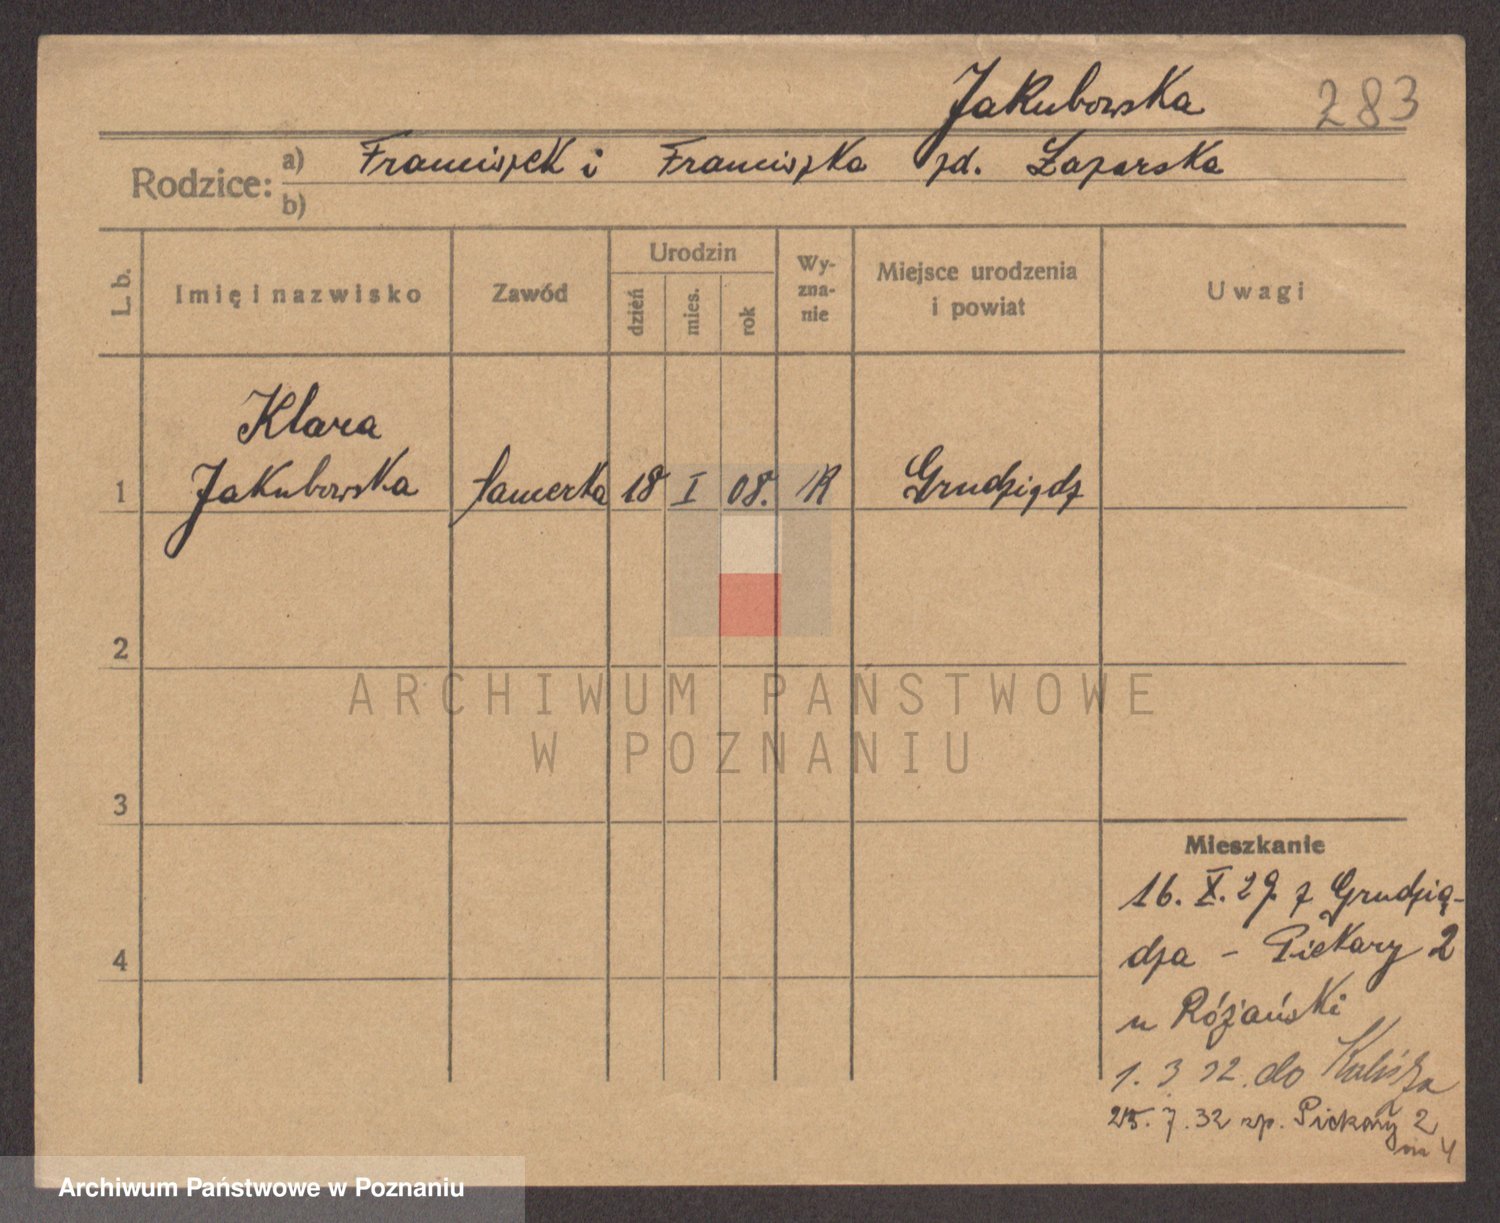 Jakubowska 283
Rodzice: a) Franciszek i Franciszka zd. Łazarska
b)
L. b. Imię i nazwisko Zawód Urodzin dzień mies. rok Wy-zna-nie Miejsce urodzenia i powiat Uwagi
Klara
1 Jakubowska 18 I 08. R Grudziądz
2
3
4
Mieszkanie
16. X. 29 z Grudzią-
dza - Piekary 2
u Różański
1. 3 32. do Kalisza
25. 7. 32 sp. Piekary 2
m 4
ARCHIWUM PAŃSTWOWE
W POZNANIU
Archiwum Państwowe w Poznaniu